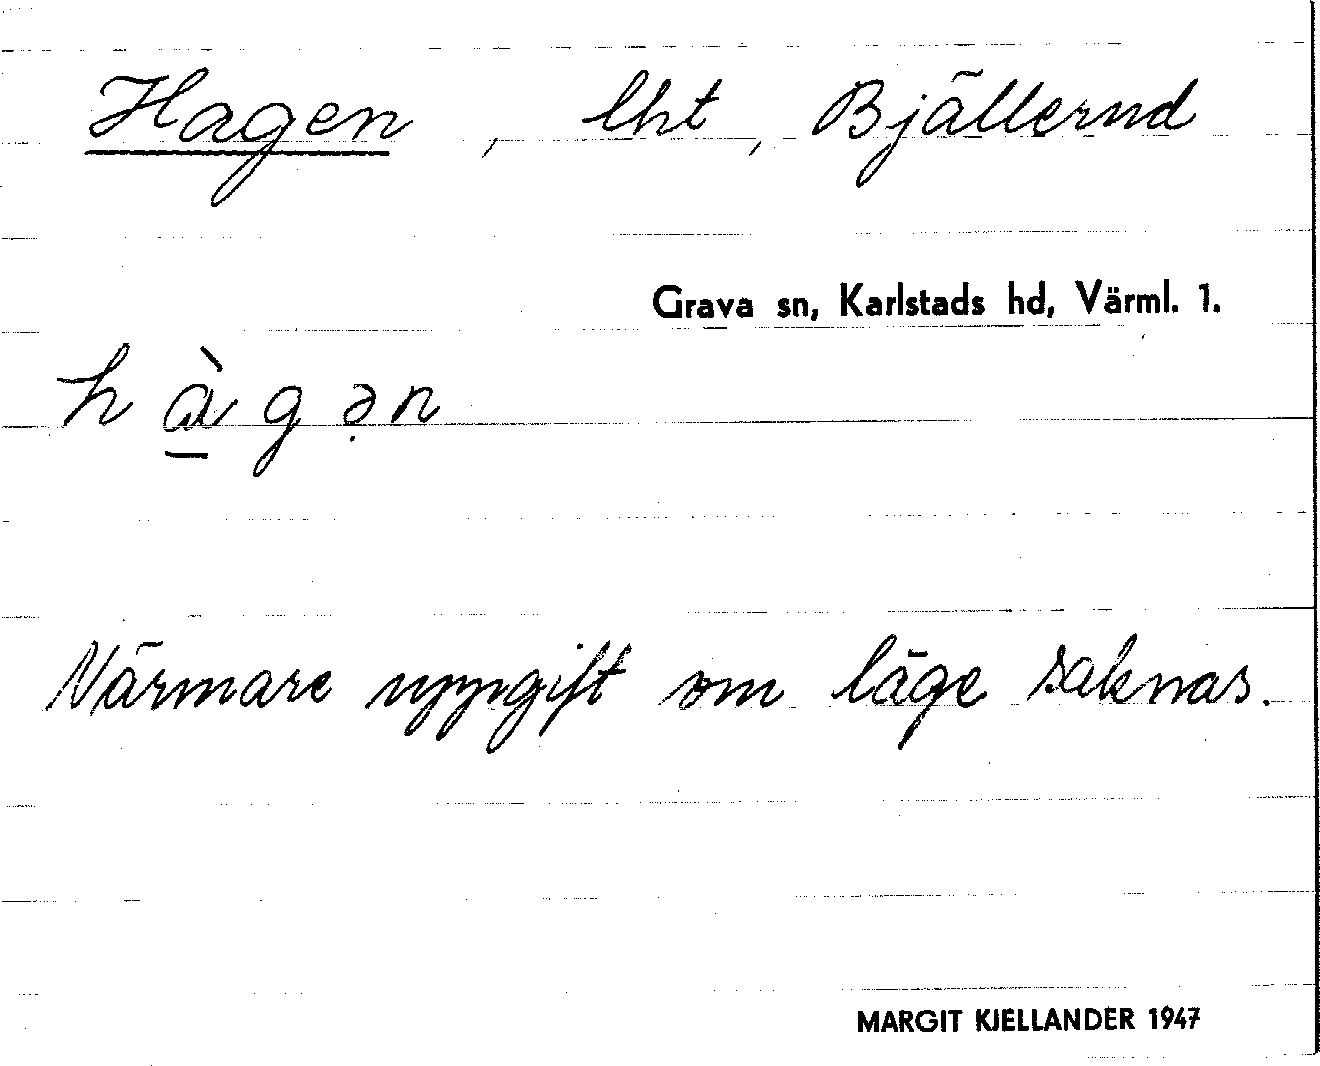 Hagen, lht, Bjällernd
Grava sn, Karlstads hd, Värml. 1.
hàgən
Närmare uppgift om läge saknas.
MARGIT KJELLANDER 1947